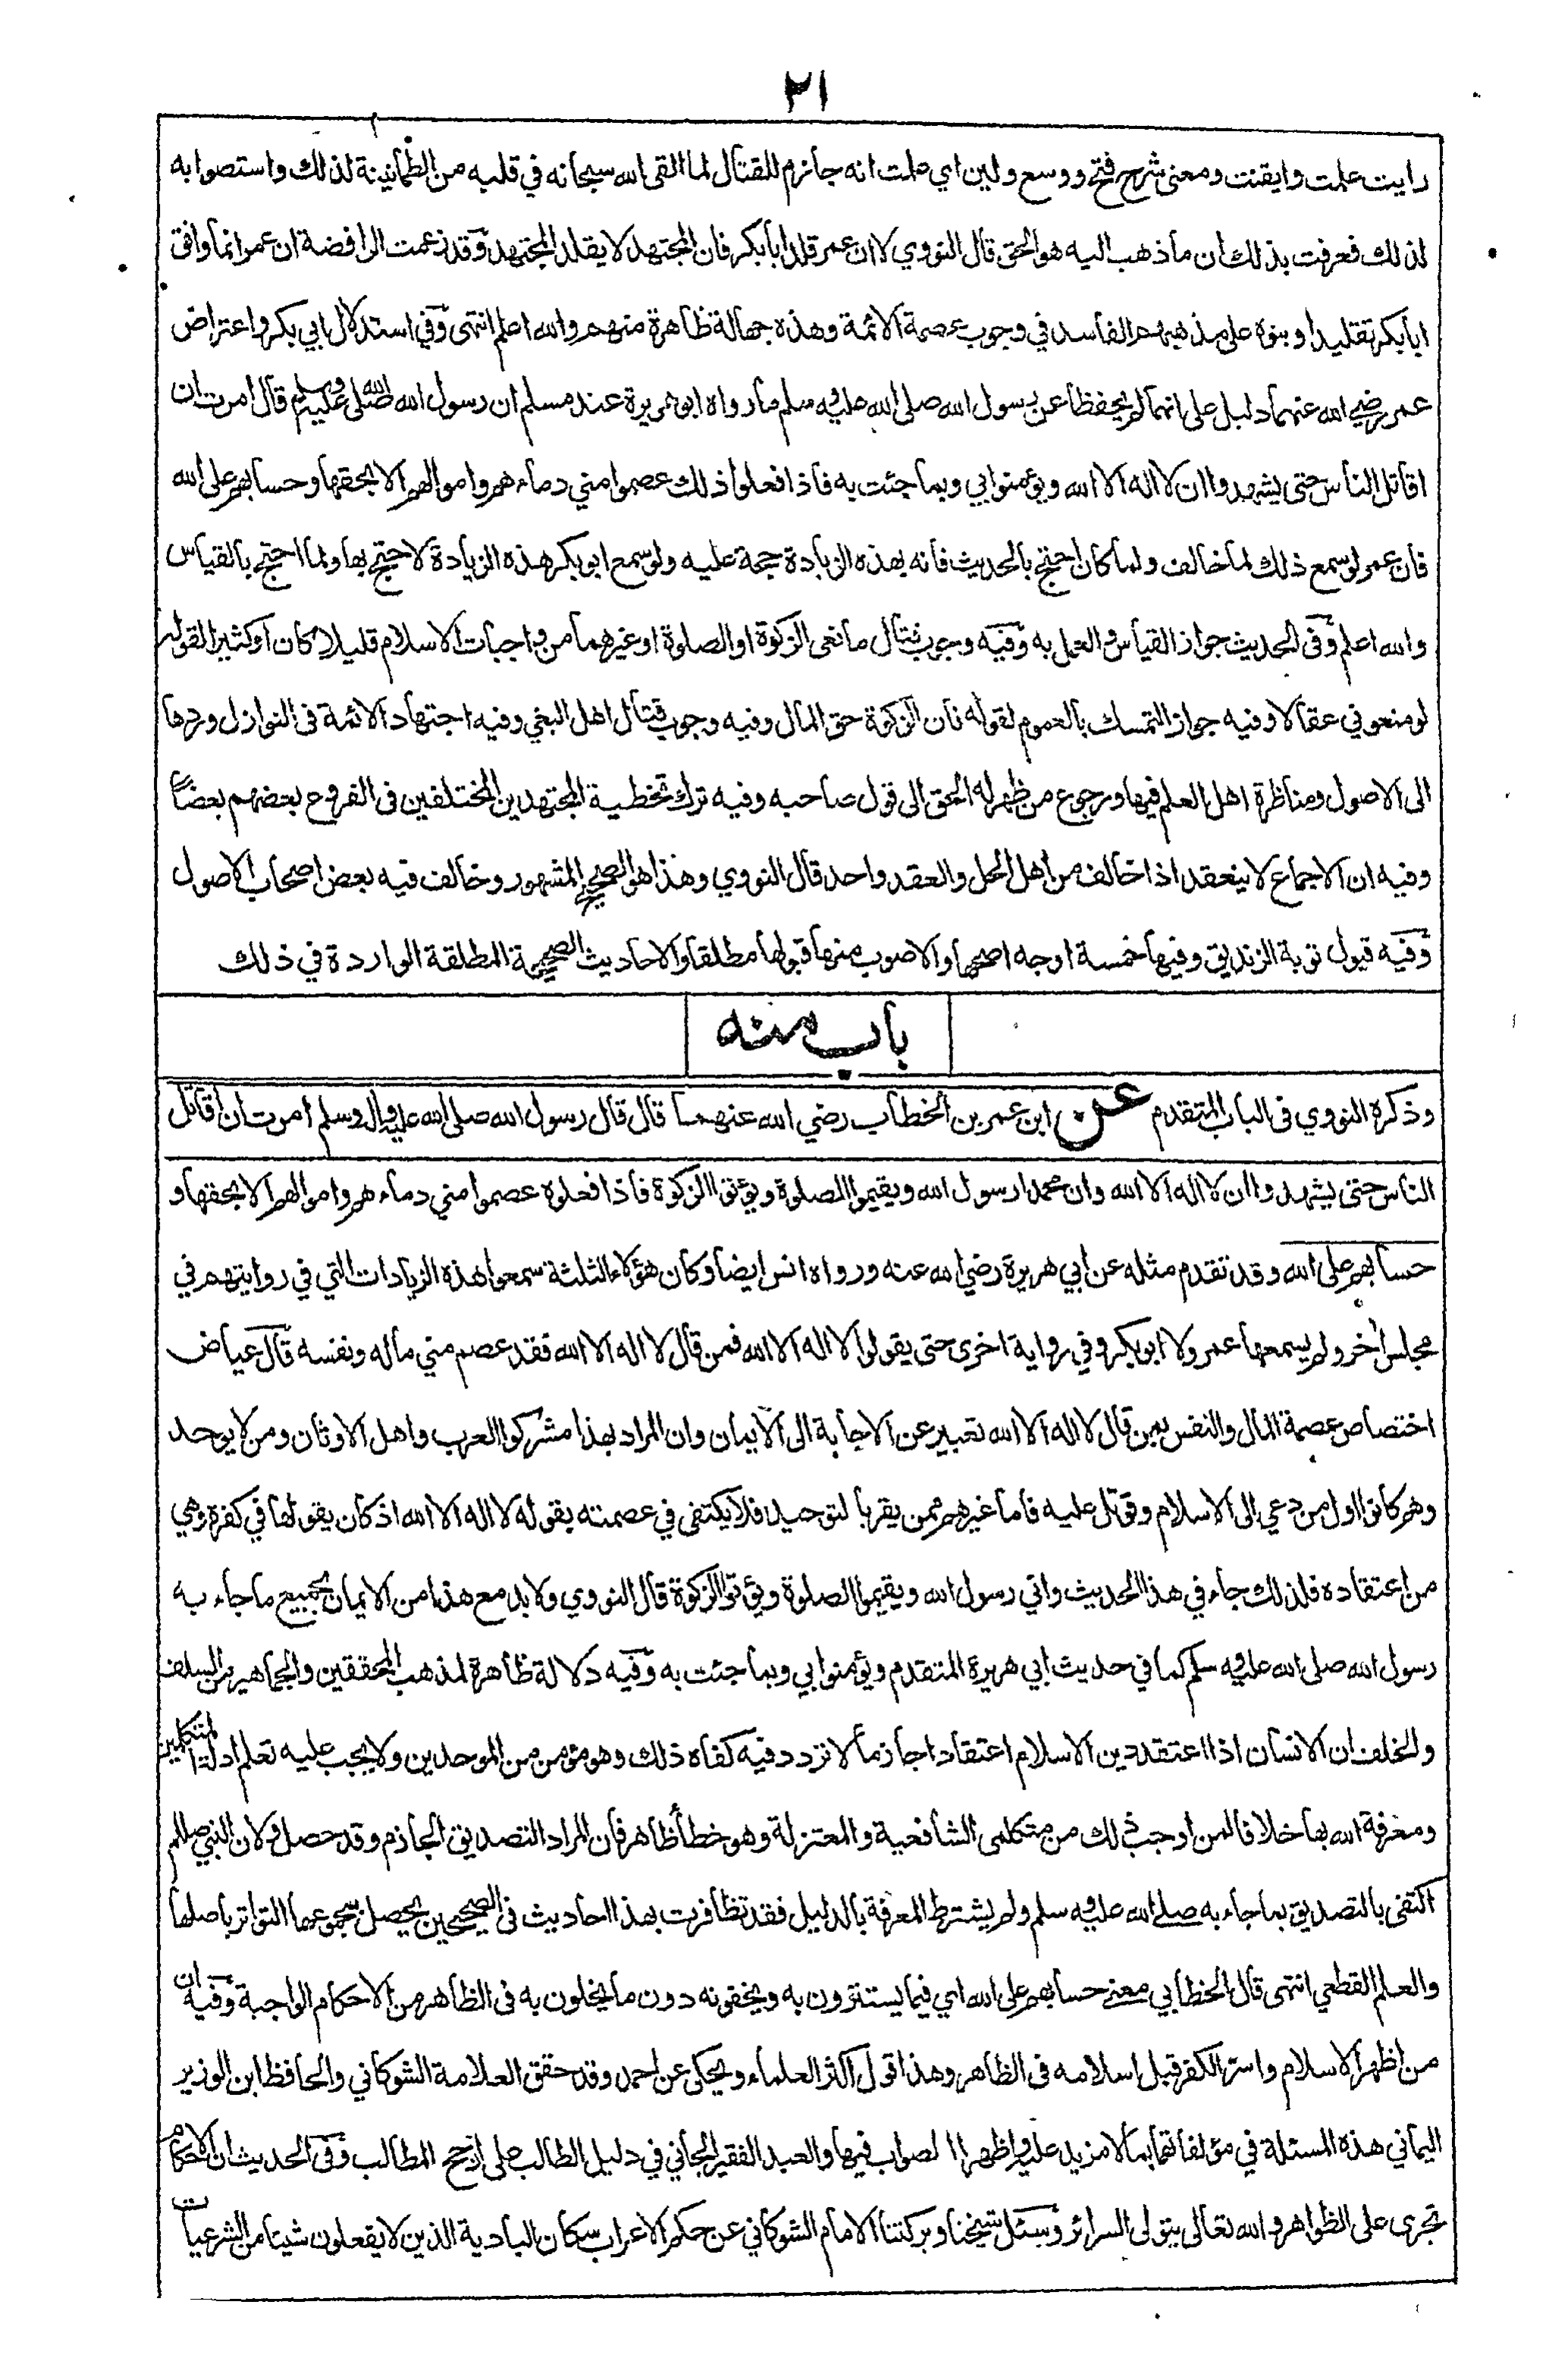 ٢١
رايت علمت وايقنت ومعنى شرح فتح ووسع ولين اي علمت انه جازم للقتال لما القى الله سبحانه في قلبه من الطمانينة لذلك واستصوابه
لذلك فعرفت بذلك ان ما ذهب اليه هو الحق قال النووي لا ان عمر قلد ابا بكر فان المجتهد لا يقلد المجتهد وقد زعمت الرافضة ان عمر انما وافق
ابا بكر تقليدا وبنوه على مذهبهم الفاسد في وجوب عصمة الائمة وهذه جهالة ظاهرة منهم والله اعلم انتهى وفي استدلال ابي بكر واعتراض
عمر رضي الله عنهما دليل على انهما لم يحفظا عن رسول الله صلى الله عليه وسلم ما رواه ابو هريرة عند مسلم ان رسول الله صلى الله عليه وسلم قال امرت ان
اقاتل الناس حتى يشهدوا ان لا اله الا الله ويؤمنوا بي وبما جئت به فاذا فعلوا ذلك عصموا مني دماءهم واموالهم الا بحقها وحسابهم على الله
فان عمر لو سمع ذلك لما خالف ولما كان احتج بالحديث فانه بهذه الزيادة حجة عليه ولو سمع ابو بكر هذه الزيادة لاحتج بها ولما احتج بالقياس
والله اعلم وفي الحديث جواز القياس والعمل به وفيه وجوب قتال مانعى الزكوة او الصلوة او غيرهما من واجبات الاسلام قليلا كان او كثيرا لقوله
لو منعوني عقالا وفيه جواز التمسك بالعموم لقوله فان الزكوة حق المال وفيه وجوب قتال اهل البغي وفيه اجتهاد الائمة في النوازل وردها
الى الاصول ومناظرة اهل العلم فيها ورجوع من ظهر له الحق الى قول صاحبه وفيه ترك تخطية المجتهدين المختلفين في الفروع بعضهم بعضا
وفيه ان الاجماع لا ينعقد اذا خالف من اهل الحل والعقد واحد قال النووي وهذا هو الصحيح المشهور وخالف فيه بعض اصحاب الاصول
وفيه قبول توبة الزنديق وفيها خمسة اوجه اصحها والاصوب منها قبولها مطلقا والاحاديث الصحيحة المطلقة الواردة في ذلك
باب منه
وذكره النووي في الباب المتقدم عن ابن عمر بن الخطاب رضي الله عنهما قال قال رسول الله صلى الله عليه واله وسلم امرت ان اقاتل
الناس حتى يشهدوا ان لا اله الا الله وان محمدا رسول الله ويقيموا الصلوة ويؤتوا الزكوة فاذا فعلوه عصموا مني دماءهم واموالهم الا بحقها و
حسابهم على الله وقد تقدم مثله عن ابي هريرة رضي الله عنه ورواه انس ايضا وكان هؤلاء الثلثة سمعوا هذه الزيادات التي في روايتهم في
مجلس اخر ولم يسمعها عمر ولا ابو بكر وفي رواية اخرى حتى يقولوا لا اله الا الله فمن قال لا اله الا الله فقد عصم مني ماله ونفسه قال عياض
اختصاص عصمة المال والنفس بمن قال لا اله الا الله تعبير عن الاجابة الى الايمان وان المراد بهذا مشركوا العرب واهل الاوثان ومن لا يوحد
وهم كانوا اول من دعي الى الاسلام وقوتل عليه فاما غيرهم ممن يقر بالتوحيد فلا يكتفى في عصمته بقوله لا اله الا الله اذ كان يقولها في كفره وهي
من اعتقاده فلذلك جاء في هذا الحديث واني رسول الله ويقيموا الصلوة ويؤتوا الزكوة قال النووي ولا بد مع هذا من الايمان بجميع ما جاء به
رسول الله صلى الله عليه وسلم كما في حديث ابي هريرة المتقدم ويؤمنوا بي وبما جئت به وفيه دلالة ظاهرة لمذهب المحققين والجماهير من السلف
والخلف ان الانسان اذا اعتقد دين الاسلام اعتقادا جازما لا تردد فيه كفاه ذلك وهو مؤمن من الموحدين ولا يجب عليه تعلم ادلة المتكلمين
ومعرفة الله بها خلافا لمن اوجب ذلك من متكلمي الشافعية والمعتزلة وهو خطأ ظاهر فان المراد التصديق الجازم وقد حصل ولان النبي صللم
اكتفى بالتصديق بما جاء به صلى الله عليه وسلم ولم يشترط المعرفة بالدليل فقد تظافرت بهذا احاديث في الصحيحين يحصل بمجموعها التواتر باصلها
والعلم القطعي انتهى قال الخطابي معنى حسابهم على الله اي فيما يستترون به ويخفونه دون ما يخلون به في الظاهر من الاحكام الواجبة وفيه ان
من اظهر الاسلام واستر الكفر قبل اسلامه في الظاهر وهذا قول اكثر العلماء ويحكى عن احمد وقد حقق العلامة الشوكاني والحافظ ابن الوزير
اليماني هذه المسئلة في مؤلفاتهما بما لا مزيد عليه واظهرا الصواب فيها والعبد الفقير الجاني في دليل الطالب على ارجح المطالب وفي الحديث ان الاحكام
تجرى على الظواهر والله تعالى يتولى السرائر وسئل شيخنا وبركتنا الامام الشوكاني عن حكم الاعراب سكان البادية الذين لا يفعلون شيئا من الشرعيات